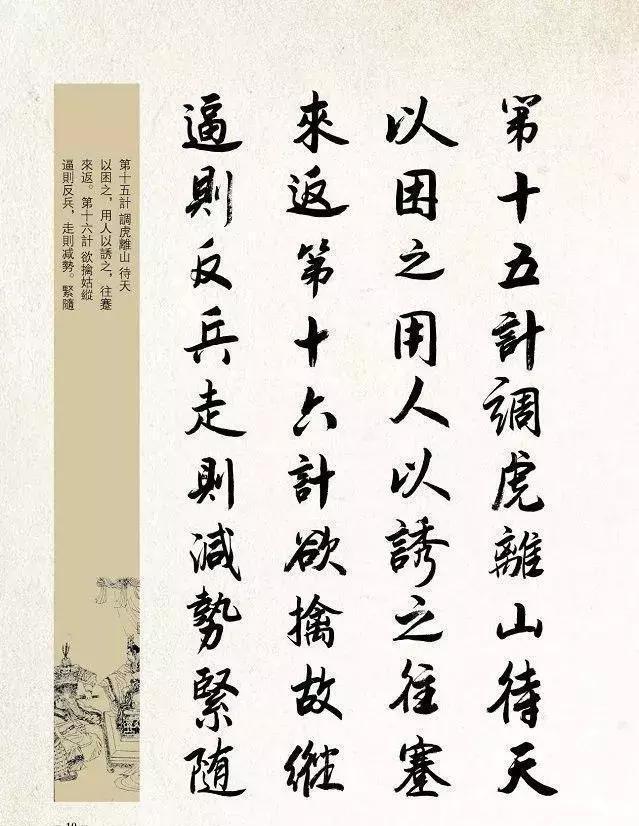 第十五計調虎離山待天
以困之用人以誘之往蹇
來返第十六計欲擒故縱
逼則反兵走則減勢緊隨
第十五計 調虎離山 待天
以困之，用人以誘之，往蹇
來返。第十六計 欲擒姑縱
逼則反兵，走則减勢。緊隨